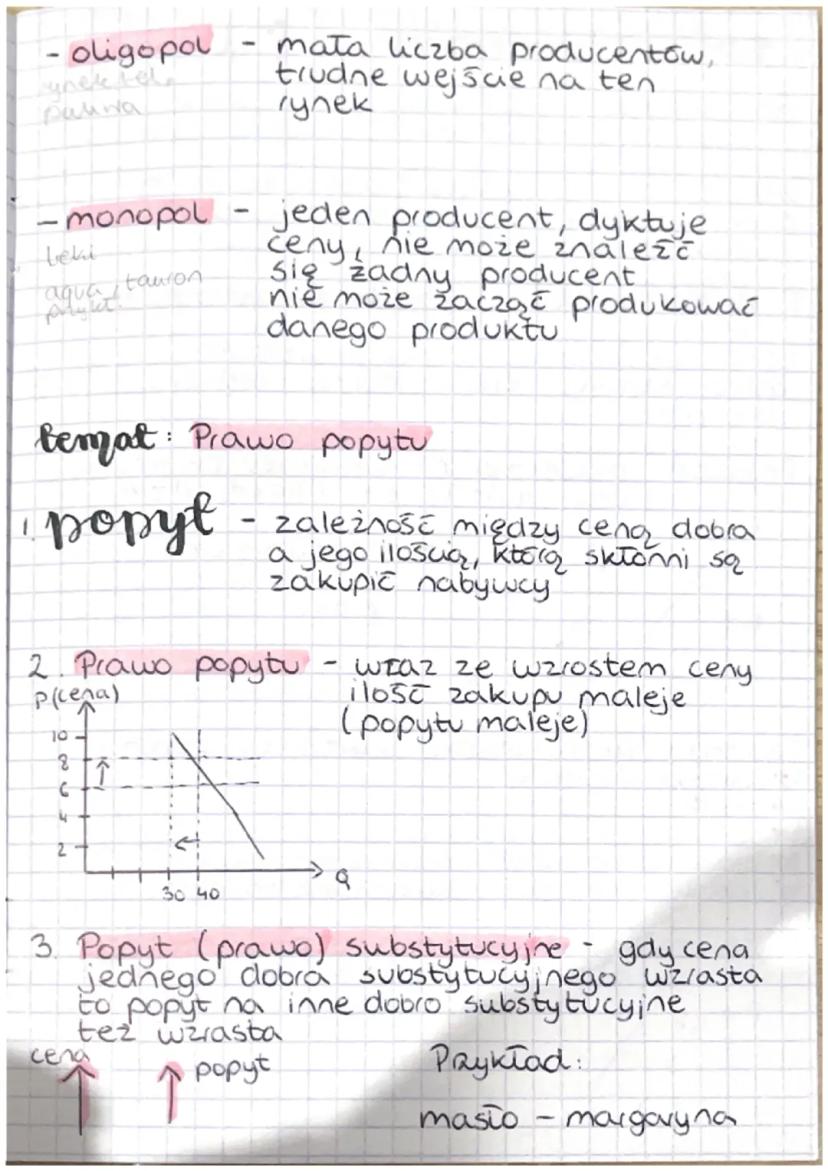 - oligopol - mała liczba producentów,
trudne wejście na ten
rynek
rynek tel.
paliwa
- monopol - jeden producent, dyktuje
ceny, nie może znaleźć
się żadny producent
nie może zacząć produkować
danego produktu
leki
aqua, tauron
temat: Prawo popytu
1. popyt - zależność między ceną dobra
a jego ilością, którą skłonni są
zakupić nabywcy
2. Prawo popytu - wraz ze wzrostem ceny
ilość zakupu maleje
(popytu maleje)
P(cena)
10
8
6
4
2
30 40
Q
3. Popyt (prawo) substytucyjne - gdy cena
jednego dobra substytucyjnego wzrasta
to popyt na inne dobro substytucyjne
też wzrasta
cena
popyt
Przykład:
masło - margaryna